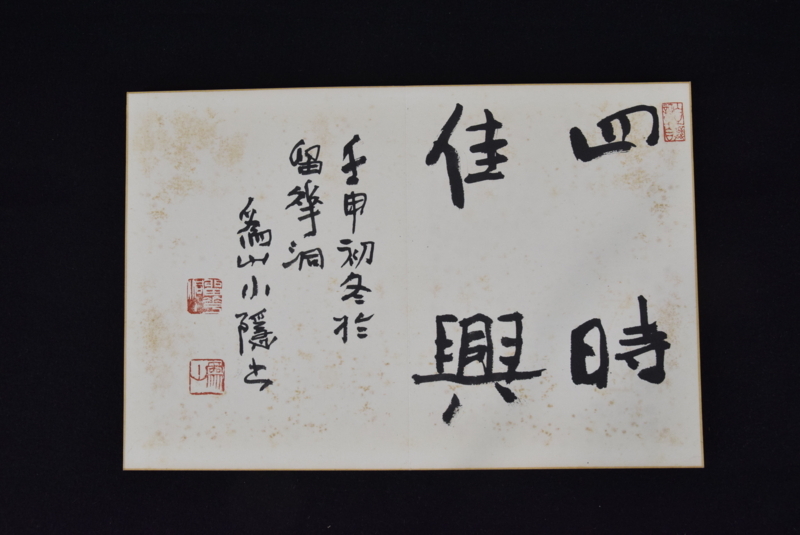 四時
佳興
壬申初冬於
留夢洞
為山小隱書